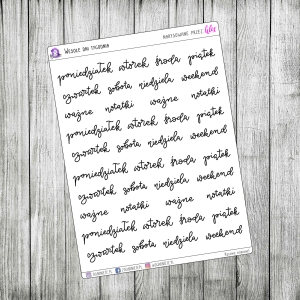 Wesołe dni tygodnia
poniedziałek wtorek środa piątek
czwartek sobota niedziela weekend
ważne notatki ważne notatki
poniedziałek wtorek środa piątek
czwartek sobota niedziela weekend
poniedziałek wtorek środa piątek
czwartek sobota niedziela weekend
ważne notatki ważne notatki
poniedziałek wtorek środa piątek
czwartek sobota niedziela weekend